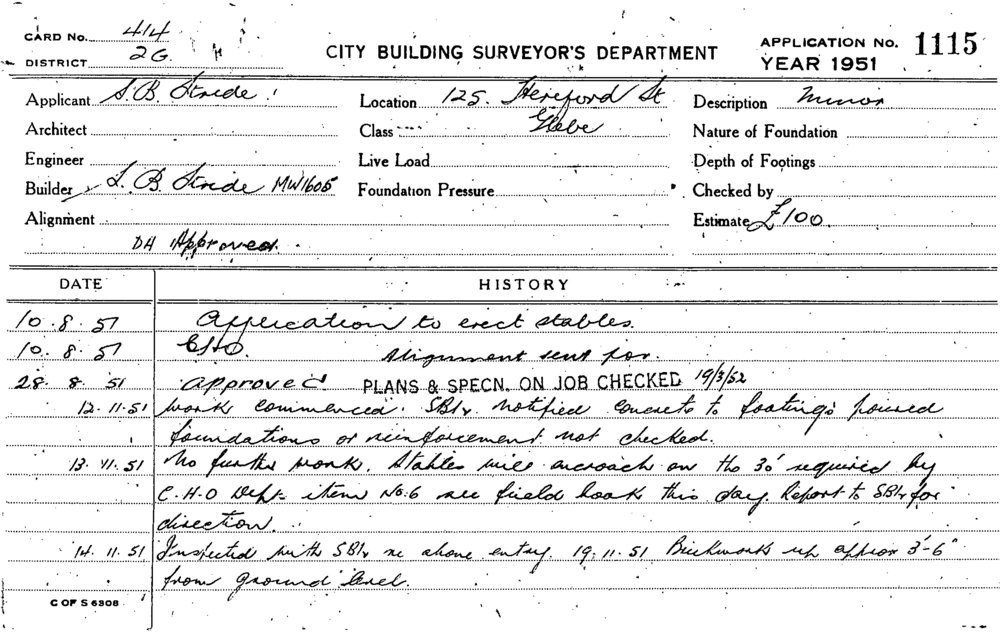 CARD No. 414
DISTRICT 2G.
CITY BUILDING SURVEYOR'S DEPARTMENT
APPLICATION No. 1115
YEAR 1951
Applicant S. B. Stride.
Location 125. Hereford St
Glebe
Description Minor
Architect
Class
Nature of Foundation
Engineer
Live Load
Depth of Footings
Builder L. B. Stride MW1605
Foundation Pressure
Checked by
Alignment
Estimate £100
DH Approved.
DATE HISTORY
10.8.51 Application to erect stables.
10.8.51 CHO. Alignment sent for.
28.8.51 approved PLANS & SPECN. ON JOB CHECKED 19/3/52
12.11.51 work commenced. SBIr. notified concrete to footings poured
foundations or reinforcement not checked.
13.11.51 No further work. Stables will encroach on the 30' required by
C.H.O Dept. item No.6 see field book this day. Report to SBIr for
direction.
14.11.51 Inspected with SBIr re above entry. 19.11.51 Brickwork up approx 3'-6"
from ground level.
C OF S 6308